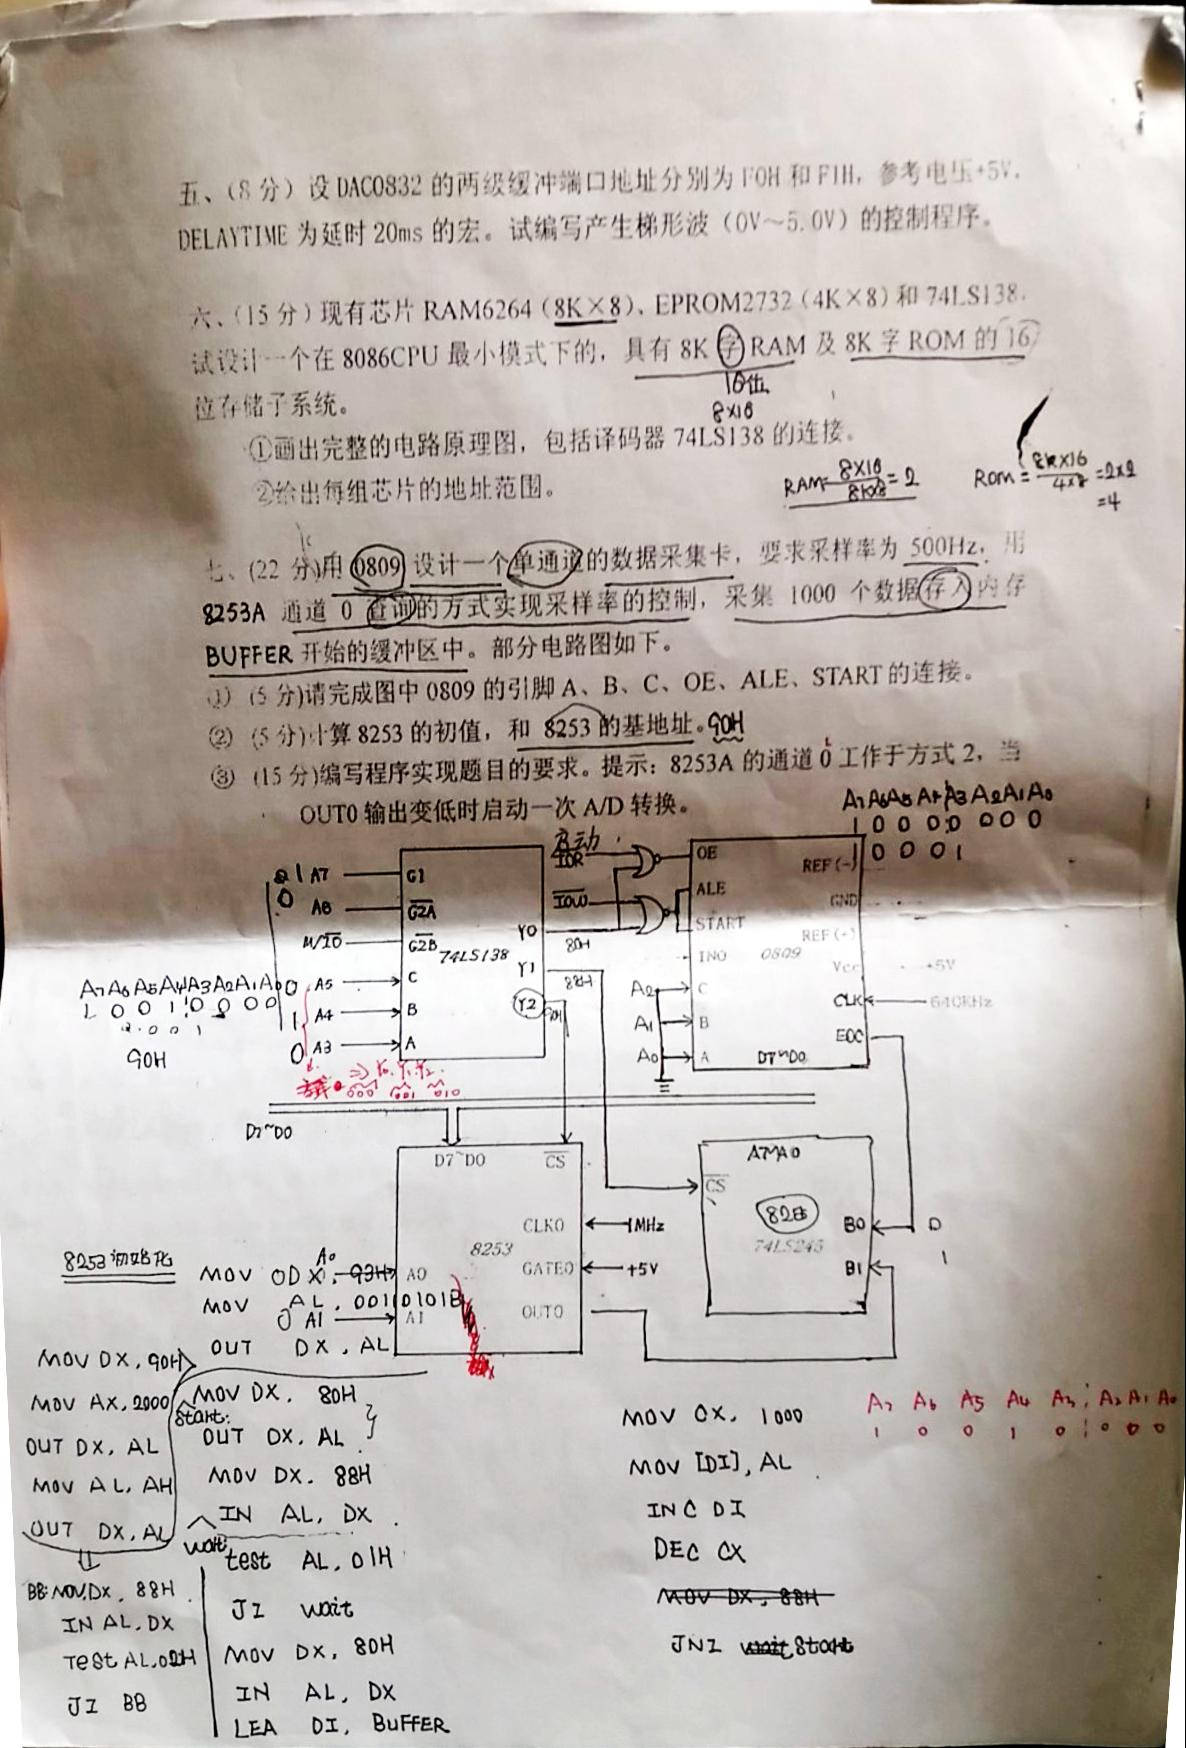 五、（8 分）设 DAC0832 的两级缓冲端口地址分别为 F0H 和 F1H，参考电压+5V，
DELAYTIME 为延时 20ms 的宏。试编写产生梯形波（0V～5.0V）的控制程序。
六、（15 分）现有芯片 RAM6264（8K×8）、EPROM2732（4K×8）和 74LS138，
试设计一个在 8086CPU 最小模式下的，具有 8K 字 RAM 及 8K 字 ROM 的 16
16位
位存储子系统。
8×16
①画出完整的电路原理图，包括译码器 74LS138 的连接。
②给出每组芯片的地址范围。
RAM= 8×16 / 8K×8 = 2
Rom = 8K×16 / 4×8 = 2×2
=4
七、(22 分)用 0809 设计一个单通道的数据采集卡，要求采样率为 500Hz，用
8253A 通道 0 查询的方式实现采样率的控制，采集 1000 个数据存入内存
BUFFER 开始的缓冲区中。部分电路图如下。
① (5 分)请完成图中 0809 的引脚 A、B、C、OE、ALE、START 的连接。
② (5 分)计算 8253 的初值，和 8253 的基地址。90H
③ (15 分)编写程序实现题目的要求。提示：8253A 的通道 0 工作于方式 2，当
OUT0 输出变低时启动一次 A/D 转换。
A7 A6 A5 A4 A3 A2 A1 A0
1 0 0 0 0 0 0 0
1 0 0 0 1
启动
1 A7 G1
0 A6 G2A
M/IO G2B
74LS138
0 A5 C
1 A4 B
0 A3 A
Y0 80H
Y1 88H
Y2 90H
IOR
IOW
OE
ALE
START
IN0
0809
REF(-)
GND
REF(+)
Vcc +5V
CLK 640KHz
EOC
A2 C
A1 B
A0 A
D7~D0
A7 A6 A5 A4 A3 A2 A1 A0
1 0 0 1 0 0 0 0
90H
⇒ Y0 Y1 Y2
000 001 010
D7~D0
D7~D0 CS
CLK0 1MHz
8253
GATE0 +5V
OUT0
A0 A0
A1 A1
A7~A0
CS
74LS245
B0 0
B1 1
8253初始化
MOV DX, 93H
MOV AL, 00110101B
OUT DX, AL
MOV DX, 90H
MOV AX, 2000
OUT DX, AL
MOV AL, AH
OUT DX, AL
BB: MOV DX, 88H
IN AL, DX
Test AL, 02H
JZ BB
MOV DX, 80H
start:
OUT DX, AL
MOV DX, 88H
IN AL, DX
wait:
test AL, 01H
JZ wait
MOV DX, 80H
IN AL, DX
LEA DI, BUFFER
MOV CX, 1000
MOV [DI], AL
INC DI
DEC CX
MOV DX, 88H
JNZ wait Start
A7 A6 A5 A4 A3 A2 A1 A0
1 0 0 1 0 0 0 0